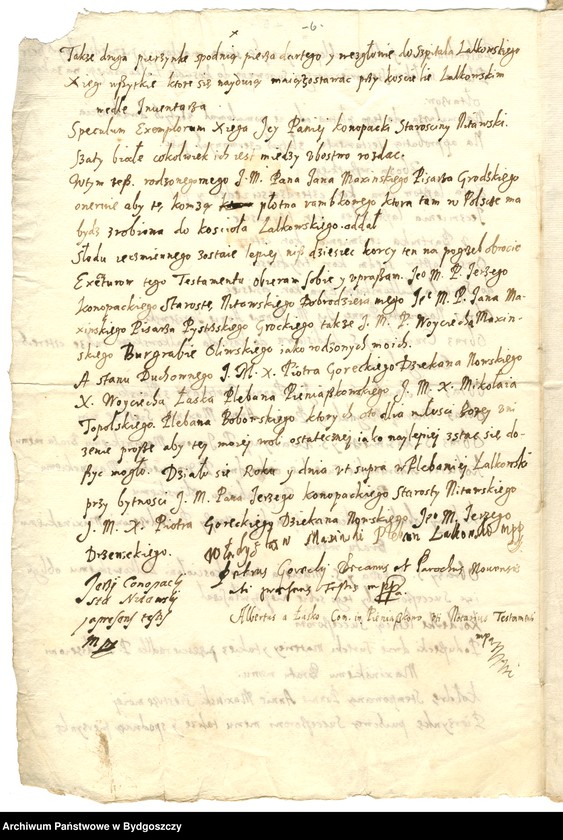 -6-
Także drugą pierzynkę spodnią pierza dartego y wezgłowie do Szpitala Lalkowskiego
Xięgi wszytkie ktore się naydują maią zostawać przy kosciele Lalkowskim
wedle Inwentarza
Speculum Exemplorum Xięga Jey Paniey Konopacki Starosciny Nitawski.
Szaty białe cokolwiek ich iest między ubostwo rozdac.
Wtym rodzonego mego J. M. Pana Jana Maxinskiego Pisarza Grodskiego
aby tę komzę płotna rambkowego ktora tam w Polscze ma
bydz zrobiona do koscioła Lalkowskiego oddał
Słodu ięczmiennego zostaie lepiey niż dziesięc korcy ten na pogrzeb obrocic
Exekutorow tego Testamentu obieram sobie y upraszam. Jeo M. P. Jerzego
Konopackiego Starostę Nitawskiego Dobrodzieia mego Jeo M. P. Jana Ma-
xinskiego Pisarza Grockiego także J. M. P. Woyciecha Maxin-
skiego Burgrabię Oliwskiego iako rodzonych moich.
A stanu Duchownego J. M. X. Piotra Goreckiego Dziekana Nowskiego
X. Woyciecha Łaska Plebana Pieniąszkowskiego J. M. X. Mikołaia
Topolskiego Plebana Boborskiego ktorych oto dla miłosci Bozey uni
zenie proszę aby tey mojey woli ostateczney iako naylepiey zstac się do-
syc mogło. Działo się Roku y dnia ut supra w Plebaniey Lalkowski
przy bytnosci J. M. Pana Jerzego Konopackiego Starosty Nitawskiego
J. M. X. Piotra Goreckiego Dziekana Nowskiego Jeo M. Jerzego
Drzewskiego. Pleban Lalkowski mpp
Jerzy Conopacky Petrus Gorecky Decanus et Parochus Novensis
Sta Nitawsky uti praesens Testis mpp
Albertus a Łasko Com. in Pieniąszkowo, uti Notarius Testamenti
mpp
Archiwum Państwowe w Bydgoszczy